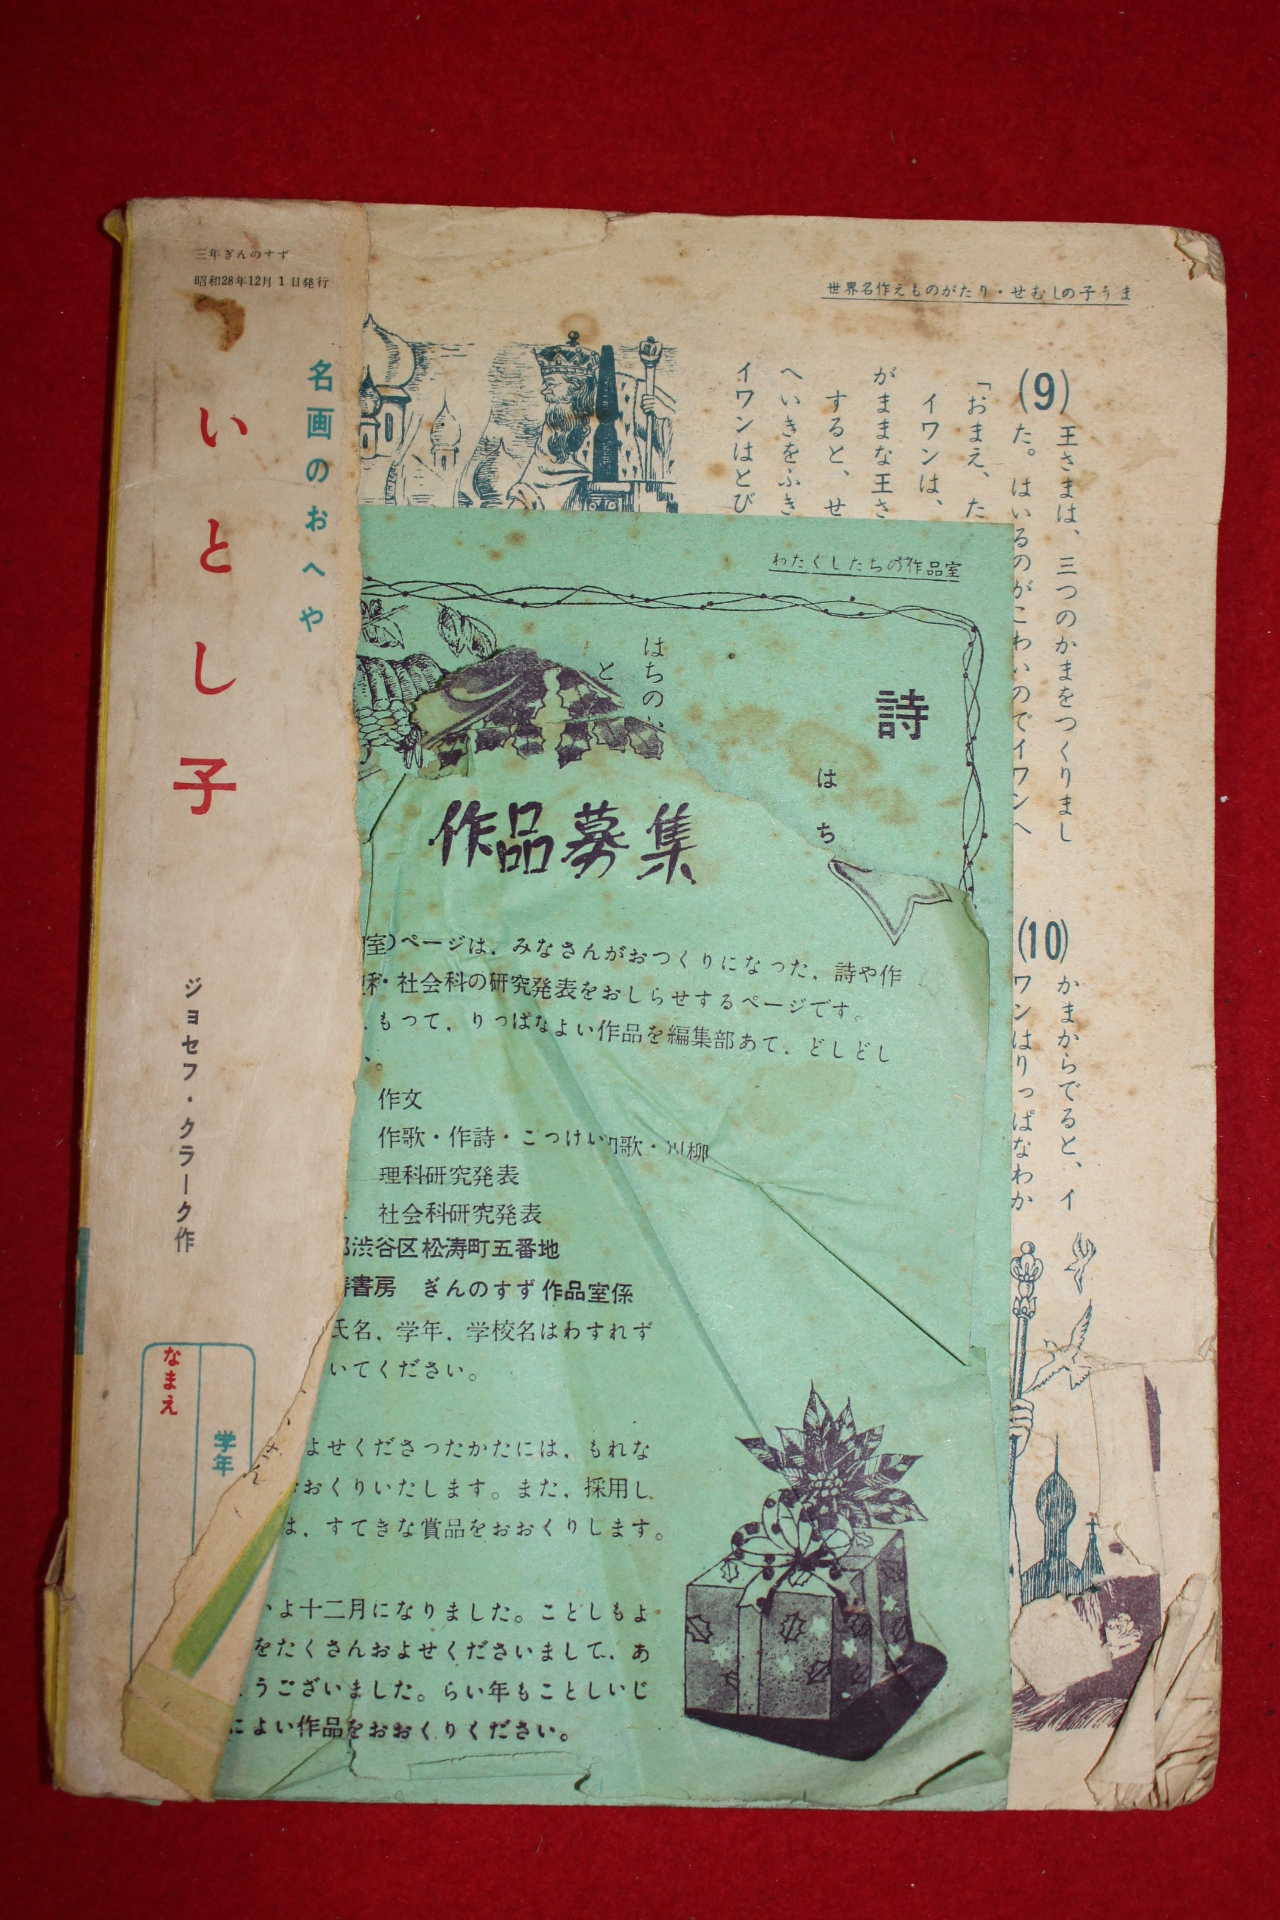 三年ぎんのすず
昭和28年12月1日発行
名画のおへや
いとし子
ジョセフ・クラーク作
なまえ
学年
世界名作えものがたり・せむしの子うま
(9)
王さまは、三つのかまをつくりまし
た。はいるのがこわいのでイワンへ
「おまえ、た
イワンは、
がままな王さ
すると、せ
へいきをふき
イワンはとび
(10)
かまからでると、イ
ワンはりっぱなわか
わたくしたちの作品室
詩
はち
はちの
と
作品募集
室)ページは、みなさんがおつくりになった、詩や作
科・社会科の研究発表をおしらせするページです。
もって、りっぱなよい作品を編集部あて、どしどし
。
作文
作歌・作詩・こっけい 歌・川柳
理科研究発表
社会科研究発表
渋谷区松涛町五番地
書房 ぎんのすず作品室係
氏名、学年、学校名はわすれず
いてください。
さん
よせくださったかたには、もれな
おくりいたします。また、採用し
は、すてきな賞品をおおくりします。
よ十二月になりました。ことしもよ
をたくさんおよせくださいまして、あ
うございました。らい年もことしいじ
によい作品をおおくりください。